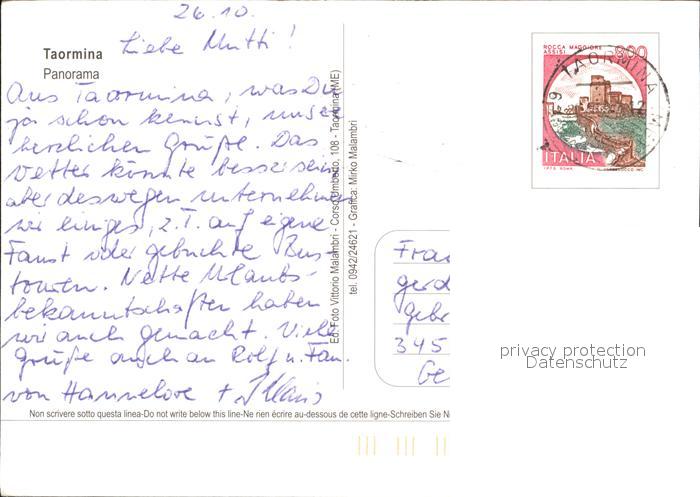 26.10.
Liebe Mutti!
Taormina
Panorama
Aus Taormina, was Du
ja schon kennst, unsere
herzlichen Grüße. Das
Wetter könnte besser sein
aber deswegen unternehmen
wir einiges, z.T. auf eigene
Faust oder gebuchte Bus-
touren. Nette Urlaubs-
bekanntschaften haben
wir auch gemacht. Viele
Grüße auch an Rolf u. Fam.
von Hannelore + Klaus
Ed. Foto Vittorio Malambri - Corso Umberto, 108 - Taormina (ME)
tel. 0942/24621 - Grafica: Mirko Malambri
ROCCA MAGGIORE
ASSISI
800
TAORMINA
ITALIA
I.P.Z.S. ROMA
Frau
gerd
Gebr
345
Ge
privacy protection
Datenschutz
Non scrivere sotto questa linea-Do not write below this line-Ne rien écrire au-dessous de cette ligne-Schreiben Sie Ni